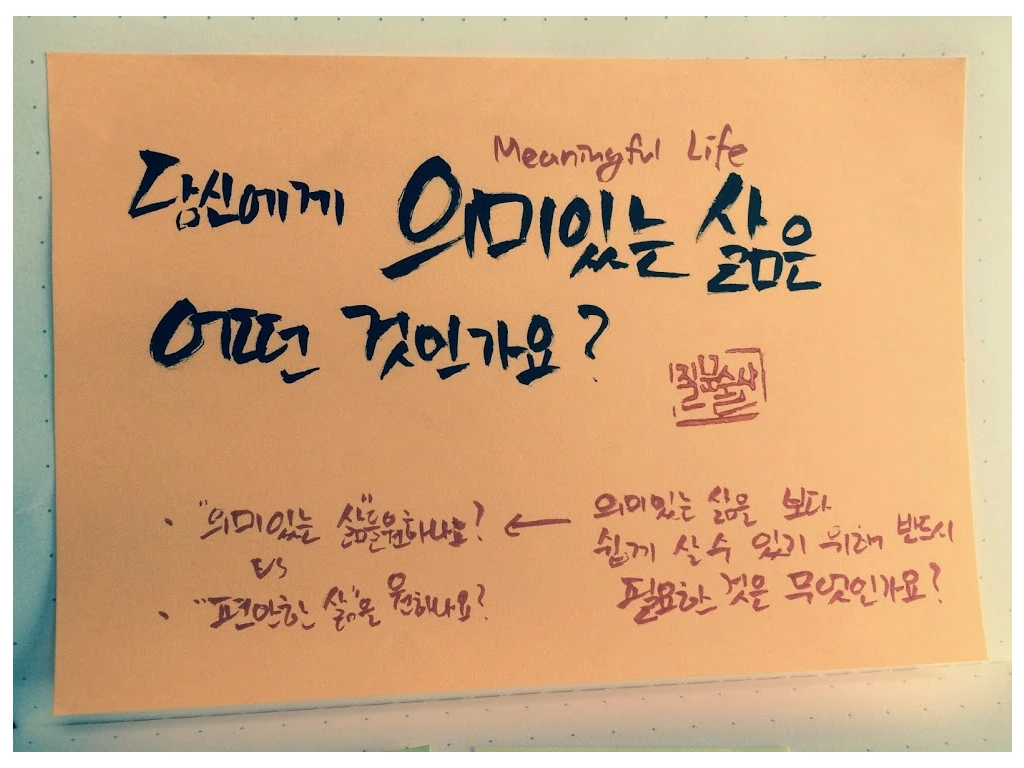 Meaningful Life
당신에게 의미있는 삶은
어떤 것인가요?
질문술사
· "의미있는 삶"을 원하나요? ←
vs
· "편안한 삶"을 원하나요?
의미있는 삶을 보다
쉽게 살 수 있기 위해 반드시
필요한 것은 무엇인가요?